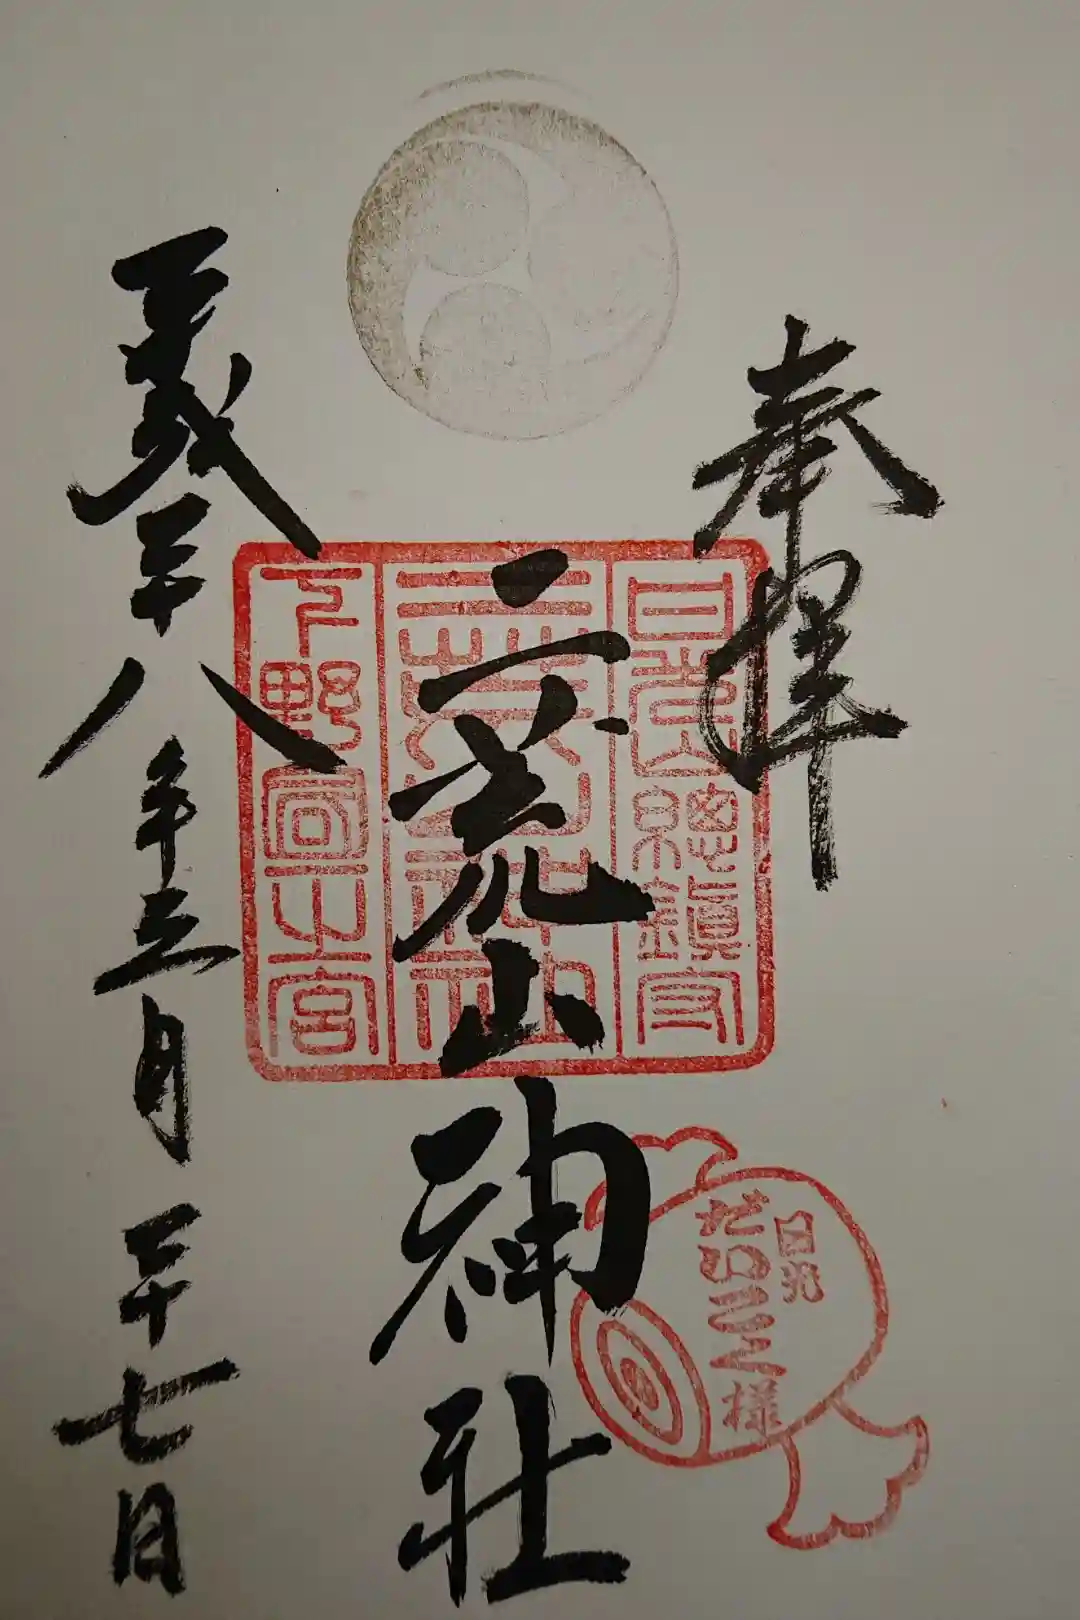 奉拝
日光山總鎮守
二荒山神社
二荒山神社
下野國一之宮
平成二十八年五月二十七日
日光
だいこく様